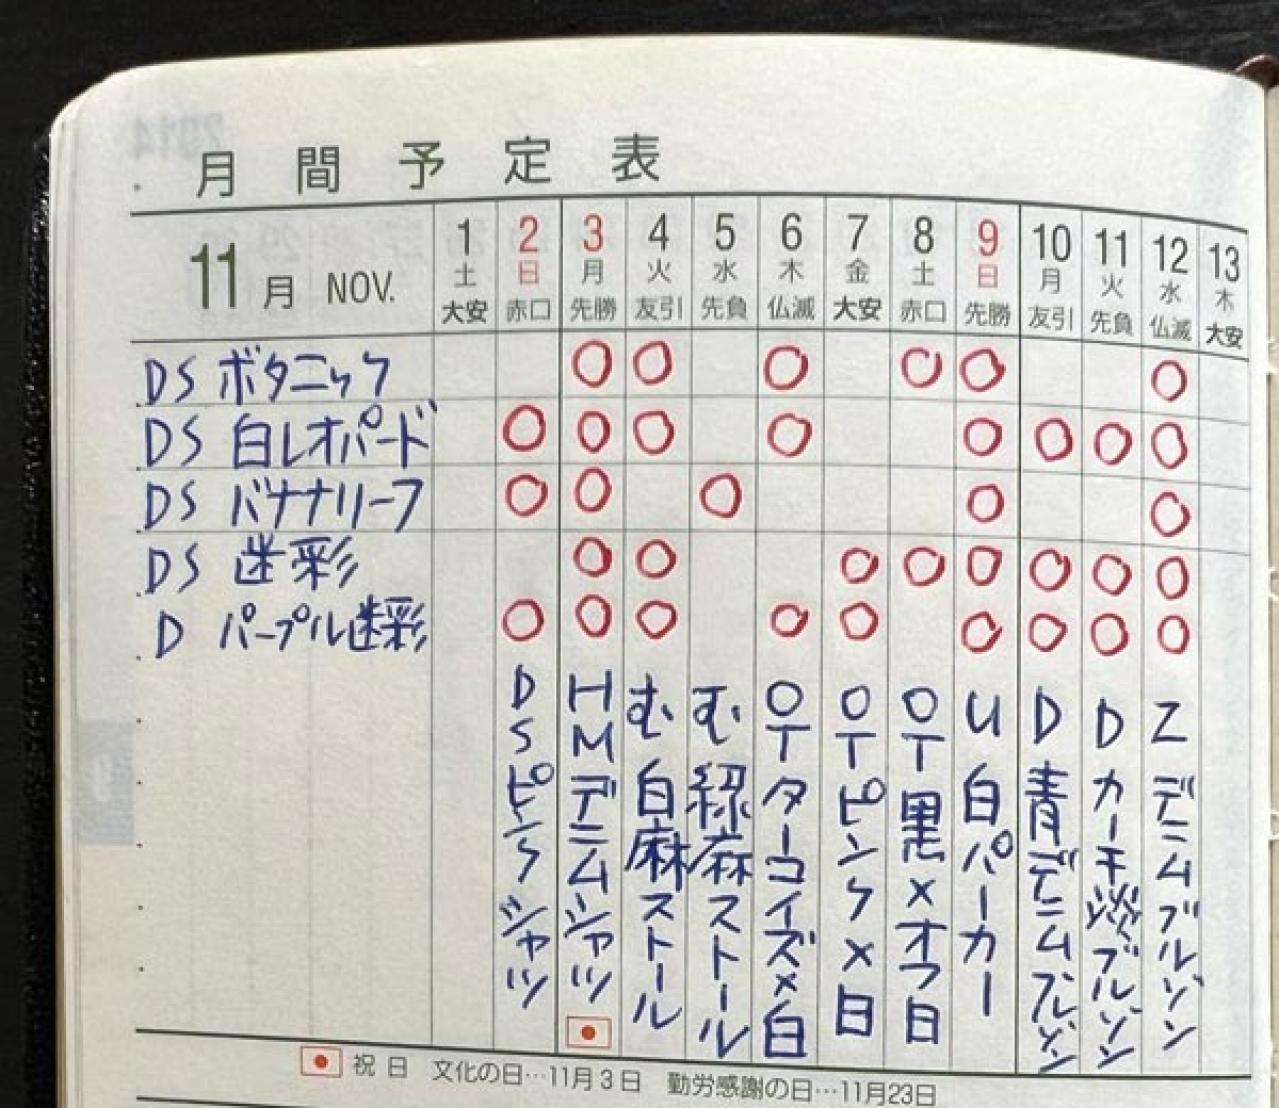 月間予定表
11月 NOV. 1 2 3 4 5 6 7 8 9 10 11 12 13
土 日 月 火 水 木 金 土 日 月 火 水 木
大安 赤口 先勝 友引 先負 仏滅 大安 赤口 先勝 友引 先負 仏滅 大安
DS ボタニック
DS 白レオパード
DS バナナリーフ
DS 迷彩
D パープル迷彩
DS ピンクシャツ
HM デニムシャツ
む 白麻ストール
む 緑麻ストール
OT ターコイズ×白
OT ピンク×白
OT 黒×オフ白
U 白パーカー
D 青デニムブルゾン
D カーキ淡ブルゾン
Z デニムブルゾン
祝日 文化の日…11月3日 勤労感謝の日…11月23日